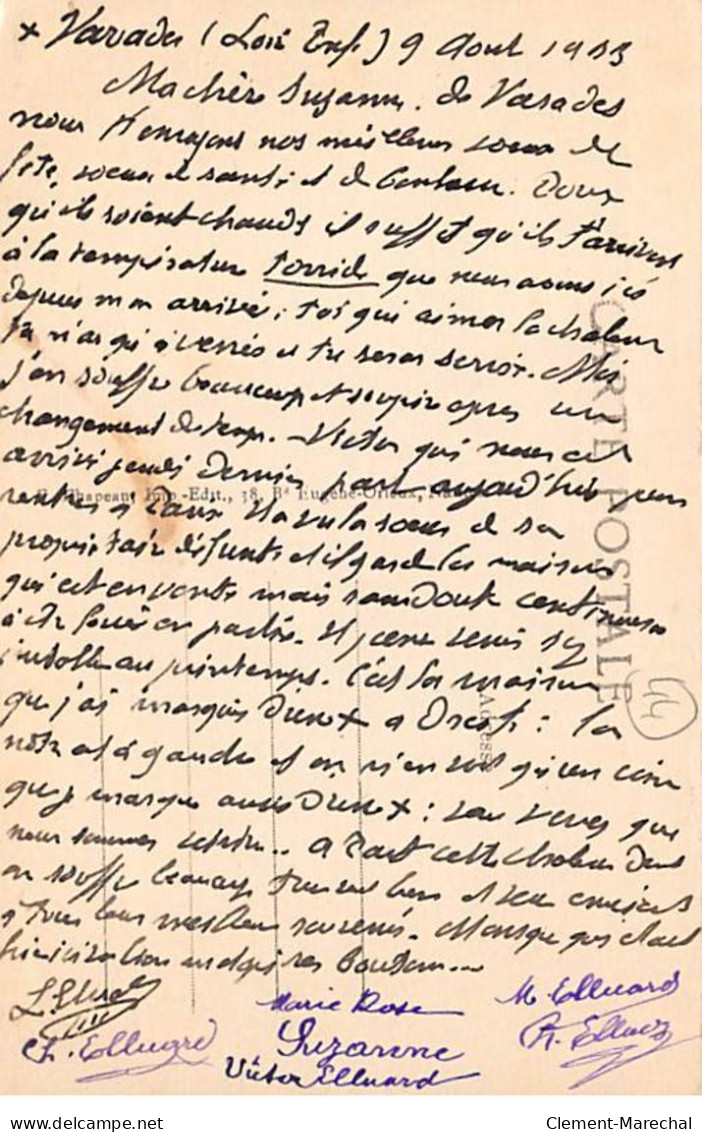 x Varades (Loire Infre) 9 Août 1933
Ma chère Suzanne. de Varades
nous t'envoyons nos meilleurs voeux de
fête, voeux de santé et de bonheur. Pour
qu'ils soient chauds il suffit qu'ils t'arrivent
à la température torride que nous avons ici
depuis mon arrivée; toi qui aimes la chaleur
tu n'as qu'à venir et tu seras servie. Moi
j'en souffre beaucoup et soupire après un
changement de temps. Victor qui nous est
arrivé jeudi dernier part aujourd'hui pour
rentrer à Paris. Il a vu la soeur de sa
propriétaire défunte et il garde la maison
qui est en vente mais sans doute continuera
à être louée en partie. Il pense venir s'y
installer au printemps. C'est la maison
que j'ai marquée d'une x à droite : la
nôtre est à gauche et on n'en voit qu'un coin
que je marque aussi d'une x : vous verrez que
nous sommes voisins.. à part cette chaleur dont
on souffre beaucoup tous vont bien et vous envoient
à tous leurs meilleurs souvenirs.
Marie Rose
M. Elluard
Ch. Elluard
Suzanne
R. Elluard
Victor Elluard
CARTE POSTALE
Adresse
F. Chapeau, Imp.-Edit., 38, Bd Eugène-Orieux,
44
Clement-Marechal